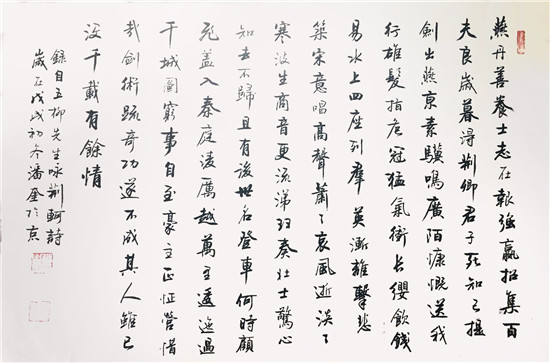 燕丹善養士志在報強嬴招集百
夫良歲暮得荊卿君子死知己提
劍出燕京素驥鳴廣陌慷慨送我
行雄髮指危冠猛氣衝長纓飲餞
易水上四座列羣英漸離擊悲
築宋意唱高聲蕭々哀風逝淡々
寒波生商音更流涕羽奏壯士驚心
知去不歸且有後世名登車何時顧
飛蓋入秦庭凌厲越萬里逶迤過
千城圖窮事自至豪主正怔營惜
哉劍術疏奇功遂不成其人雖已
沒千載有餘情
錄自五柳先生咏荊軻詩
歲在戊戌初冬潘奎於京